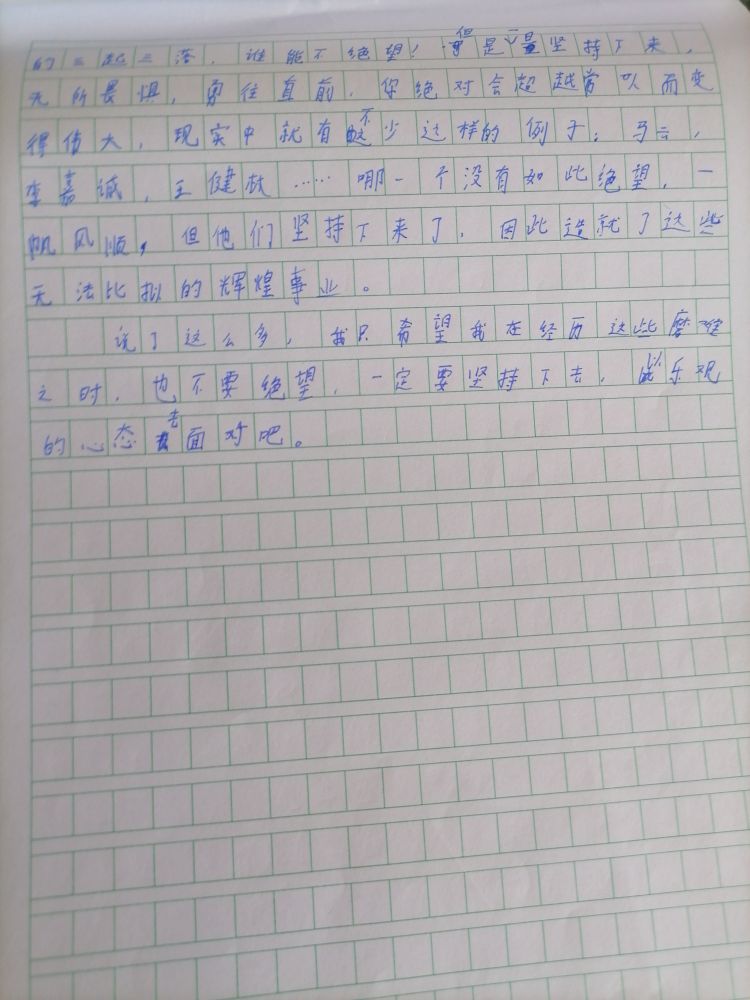 的三起三落，谁能不绝望！但是一旦坚持下来，
无所畏惧，勇往直前，你绝对会超越前以而变
得值大，现实中就有不少这样的例子：马云，
李嘉诚，王健林……哪一个没有如此绝望，一
帆风顺，但他们坚持下来了，因此造就了这些
无法比拟的辉煌事业。
说了这么多，我只希望我在经历这些磨难
之时，也不要绝望，一定要坚持下去，以乐观
的心态去面对吧。